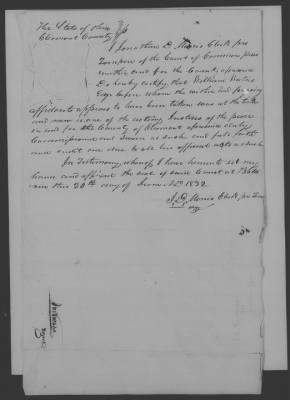 The State of Ohio
Clermont County
I Jonathan D. Morris Clerk pro
Tempore of the Court of Common pleas
within and for the County aforesaid
Do hereby certify that William
Esqr before whom the within and foregoing
affidavit appears to have been taken was at the date
and now is one of the acting Justices of the peace
in and for the County of Clermont aforesaid duly
Commissioned and Sworn as such and full faith
and credit are due to all his official acts as such
In Testimony whereof I have hereunto set my
hand and affixed the seal of said Court at
this 20th day of June AD 1832
J. D. Morris Clerk pro Tem